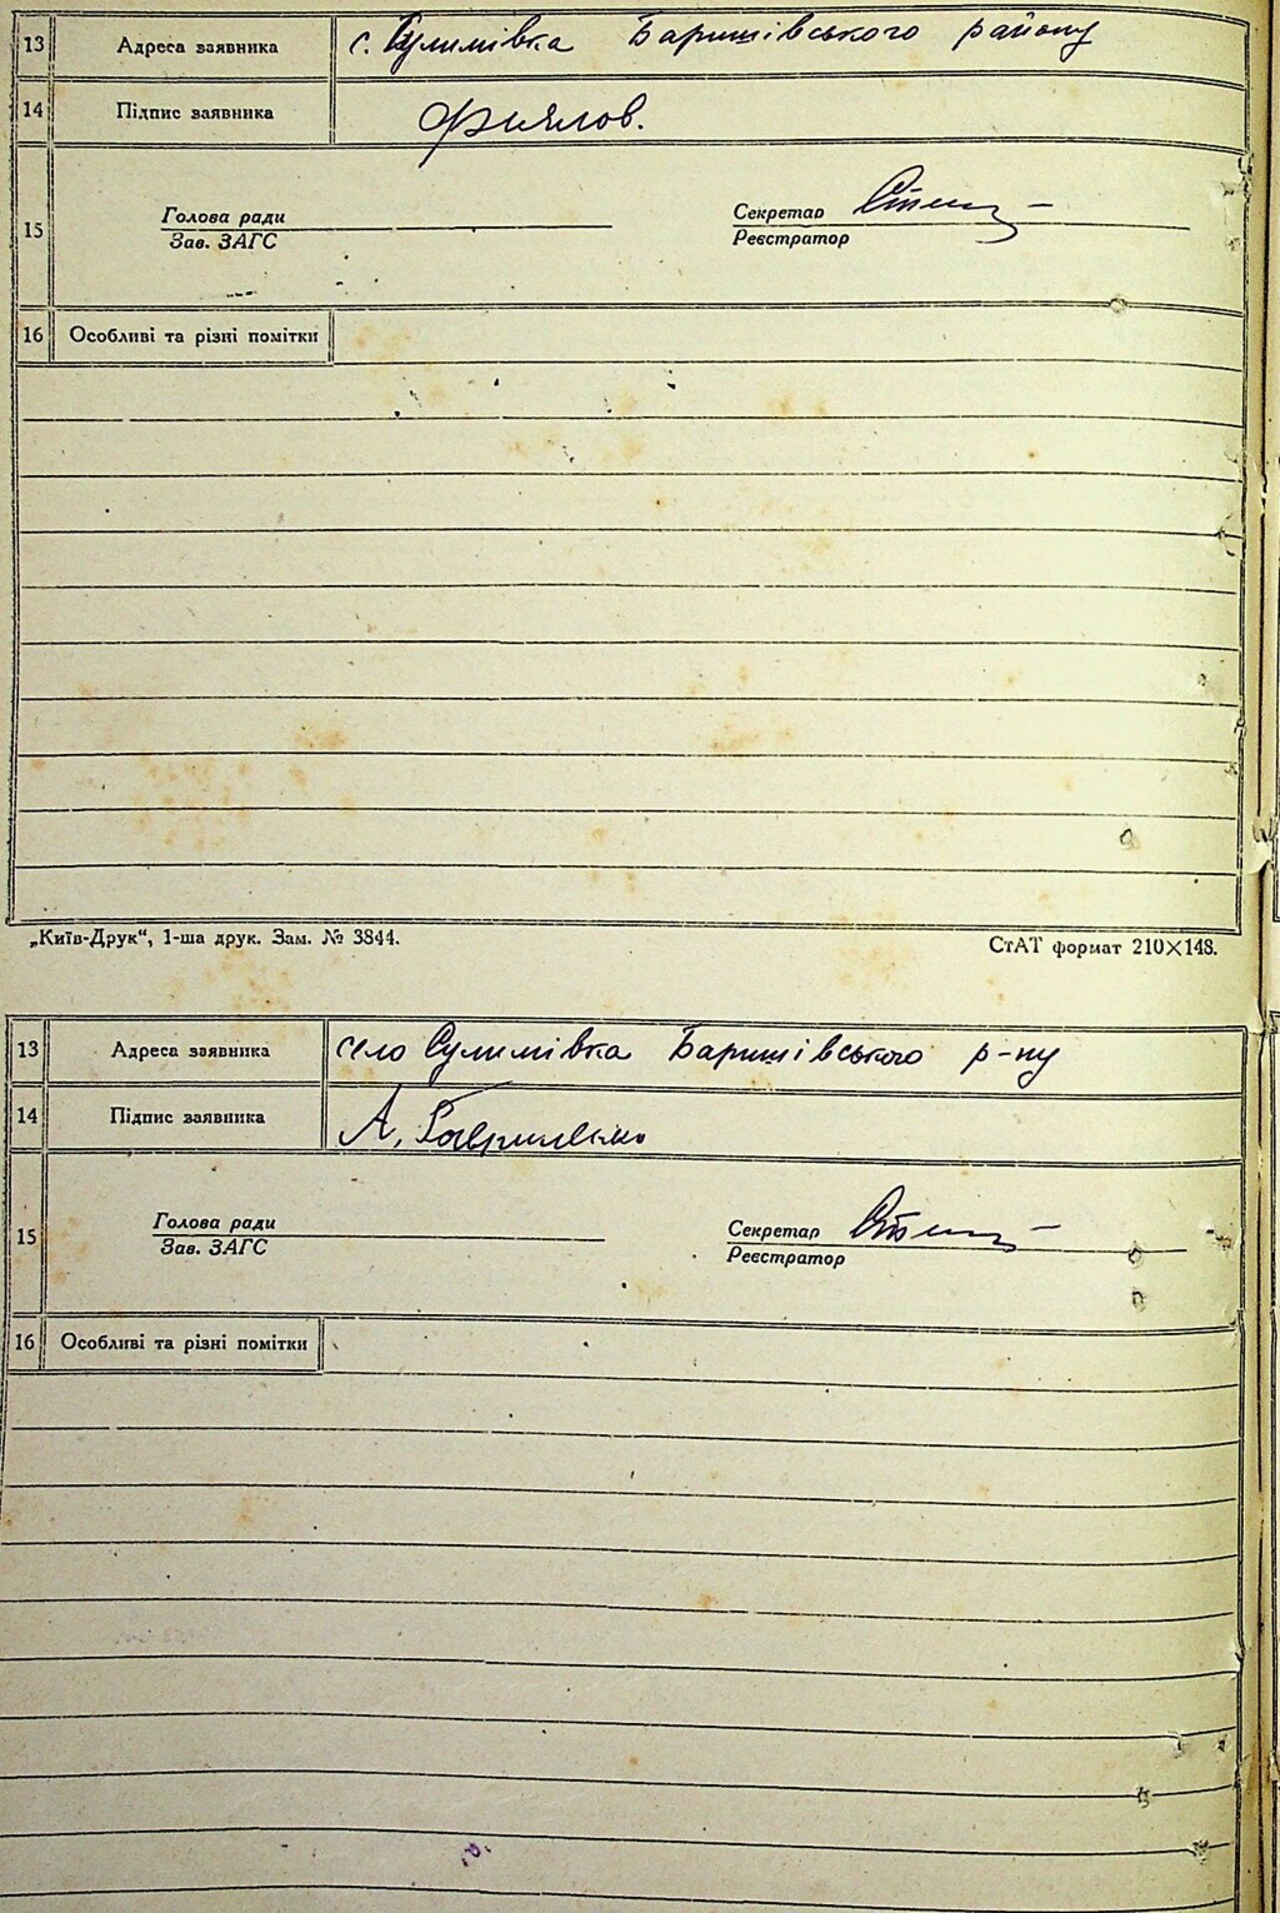 13 Адреса заявника с. Сулимівка Баришівського району
14 Підпис заявника
15 Голова ради Секретар
Зав. ЗАГС Реєстратор
16 Особливі та різні помітки
„Київ-Друк“, 1-ша друк. Зам. № 3844. СтАТ формат 210×148.
13 Адреса заявника село Сулимівка Баришівського р-ну
14 Підпис заявника А. Гавриленко
15 Голова ради Секретар
Зав. ЗАГС Реєстратор
16 Особливі та різні помітки